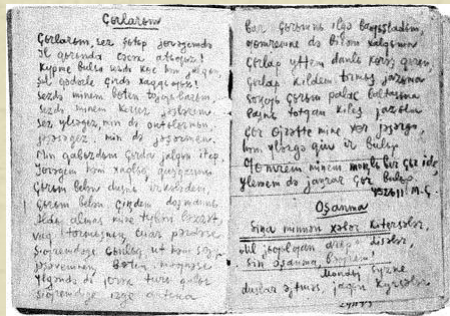 Çьrlarьm
Çьrlarьm, sez şytep jөrəgemdə
Il qьrьnda
Kypme bulsa sezdə kөc həm jalqьn,
Şul qədərle çirdə xaqьgьz!
Sezdə minem bөten tojgьlarьm,
Sezdə minem jəşlərem.
Sez ylsəgez, min də onьtьlьrmьn,
Jəşəsəgez, min də jəşərmen.
Min qabьzdьm çьrda jalqьn itep
Jөrəgem həm xaqlьq quşqanьn.
Çьrьm belən dusnь irkələdem,
Çьrьm belən çiŋdem doşmannь.
Aldьj almas mine tybən ləzzət,
Vaq tormьşnьŋ cuar pərdəse
Şiƣremdəge çьnlьq, ut həm søjy
Jəşəvemneŋ bөten məgnəse.
Ylgəndə də jөrək turь qalьr
Şiƣremdəge izge antьna
Bar çьrьmnь ilgə baƣьşladьm,
Gomremne də birəm xalqьma.
Çьrlap yttem danlь kөrəş qьrьn,
Çьrlap kildem tormьş jazьna.
Soŋƣь çьrьm palac baltasьna
Başnь totqan kileş jazьla.
Çьr øjrətte mine xөr jəşərgə,
həm ylərgə qьju ir bulьp.
Gomrem minem moŋlь ber çьr ide,
Ylemem də jaŋrar çьr bulьp.
M.Ç.
Oşanma
Siŋa minnən xəbər kitersələr,
"Ul jьqьlgan arьp" disələr,
Sin oşanma, bəƣrem!
Mondьj syzne
duslar əjtməs, jaqьn kyrsələr